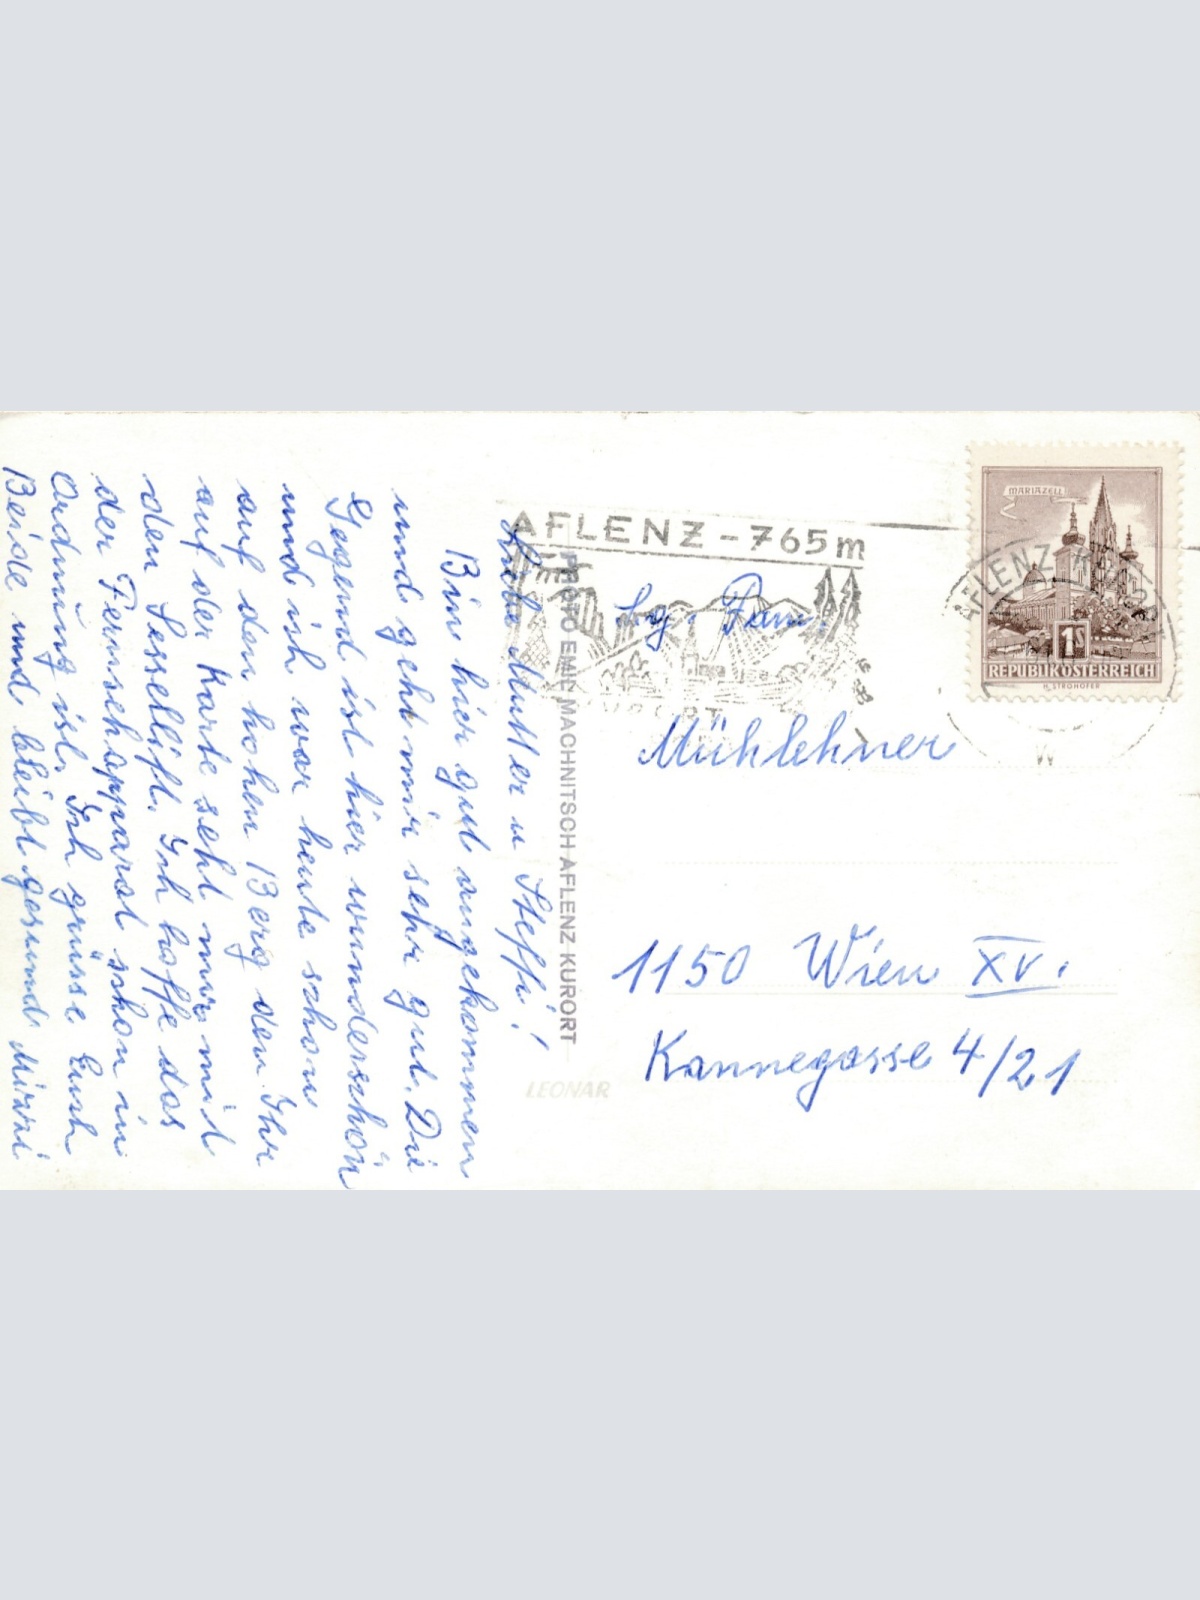 Liebe Mutter u Steffi!
Bin hier gut angekommen
und geht mir sehr gut. Die
Gegend ist hier wunderschön
und ich war heute schon
auf den hohen Berg den Ihr
auf der Karte seht nur mit
den Sessellift. Ich hoffe das
der Fernsehapparat schon in
Ordnung ist. Ich grüsse Euch
Beide und bleibt gesund. Mizzi
PHOTO EMIL MACHNITSCH AFLENZ KURORT
LEONAR
AFLENZ - 765 m
KURORT
MARIAZELL
1 S
REPUBLIK ÖSTERREICH
H. STROHOFER
AFLENZ KURORT
Sg. Fam.
Mühlehner
1150 Wien XV.
Kannegasse 4/21